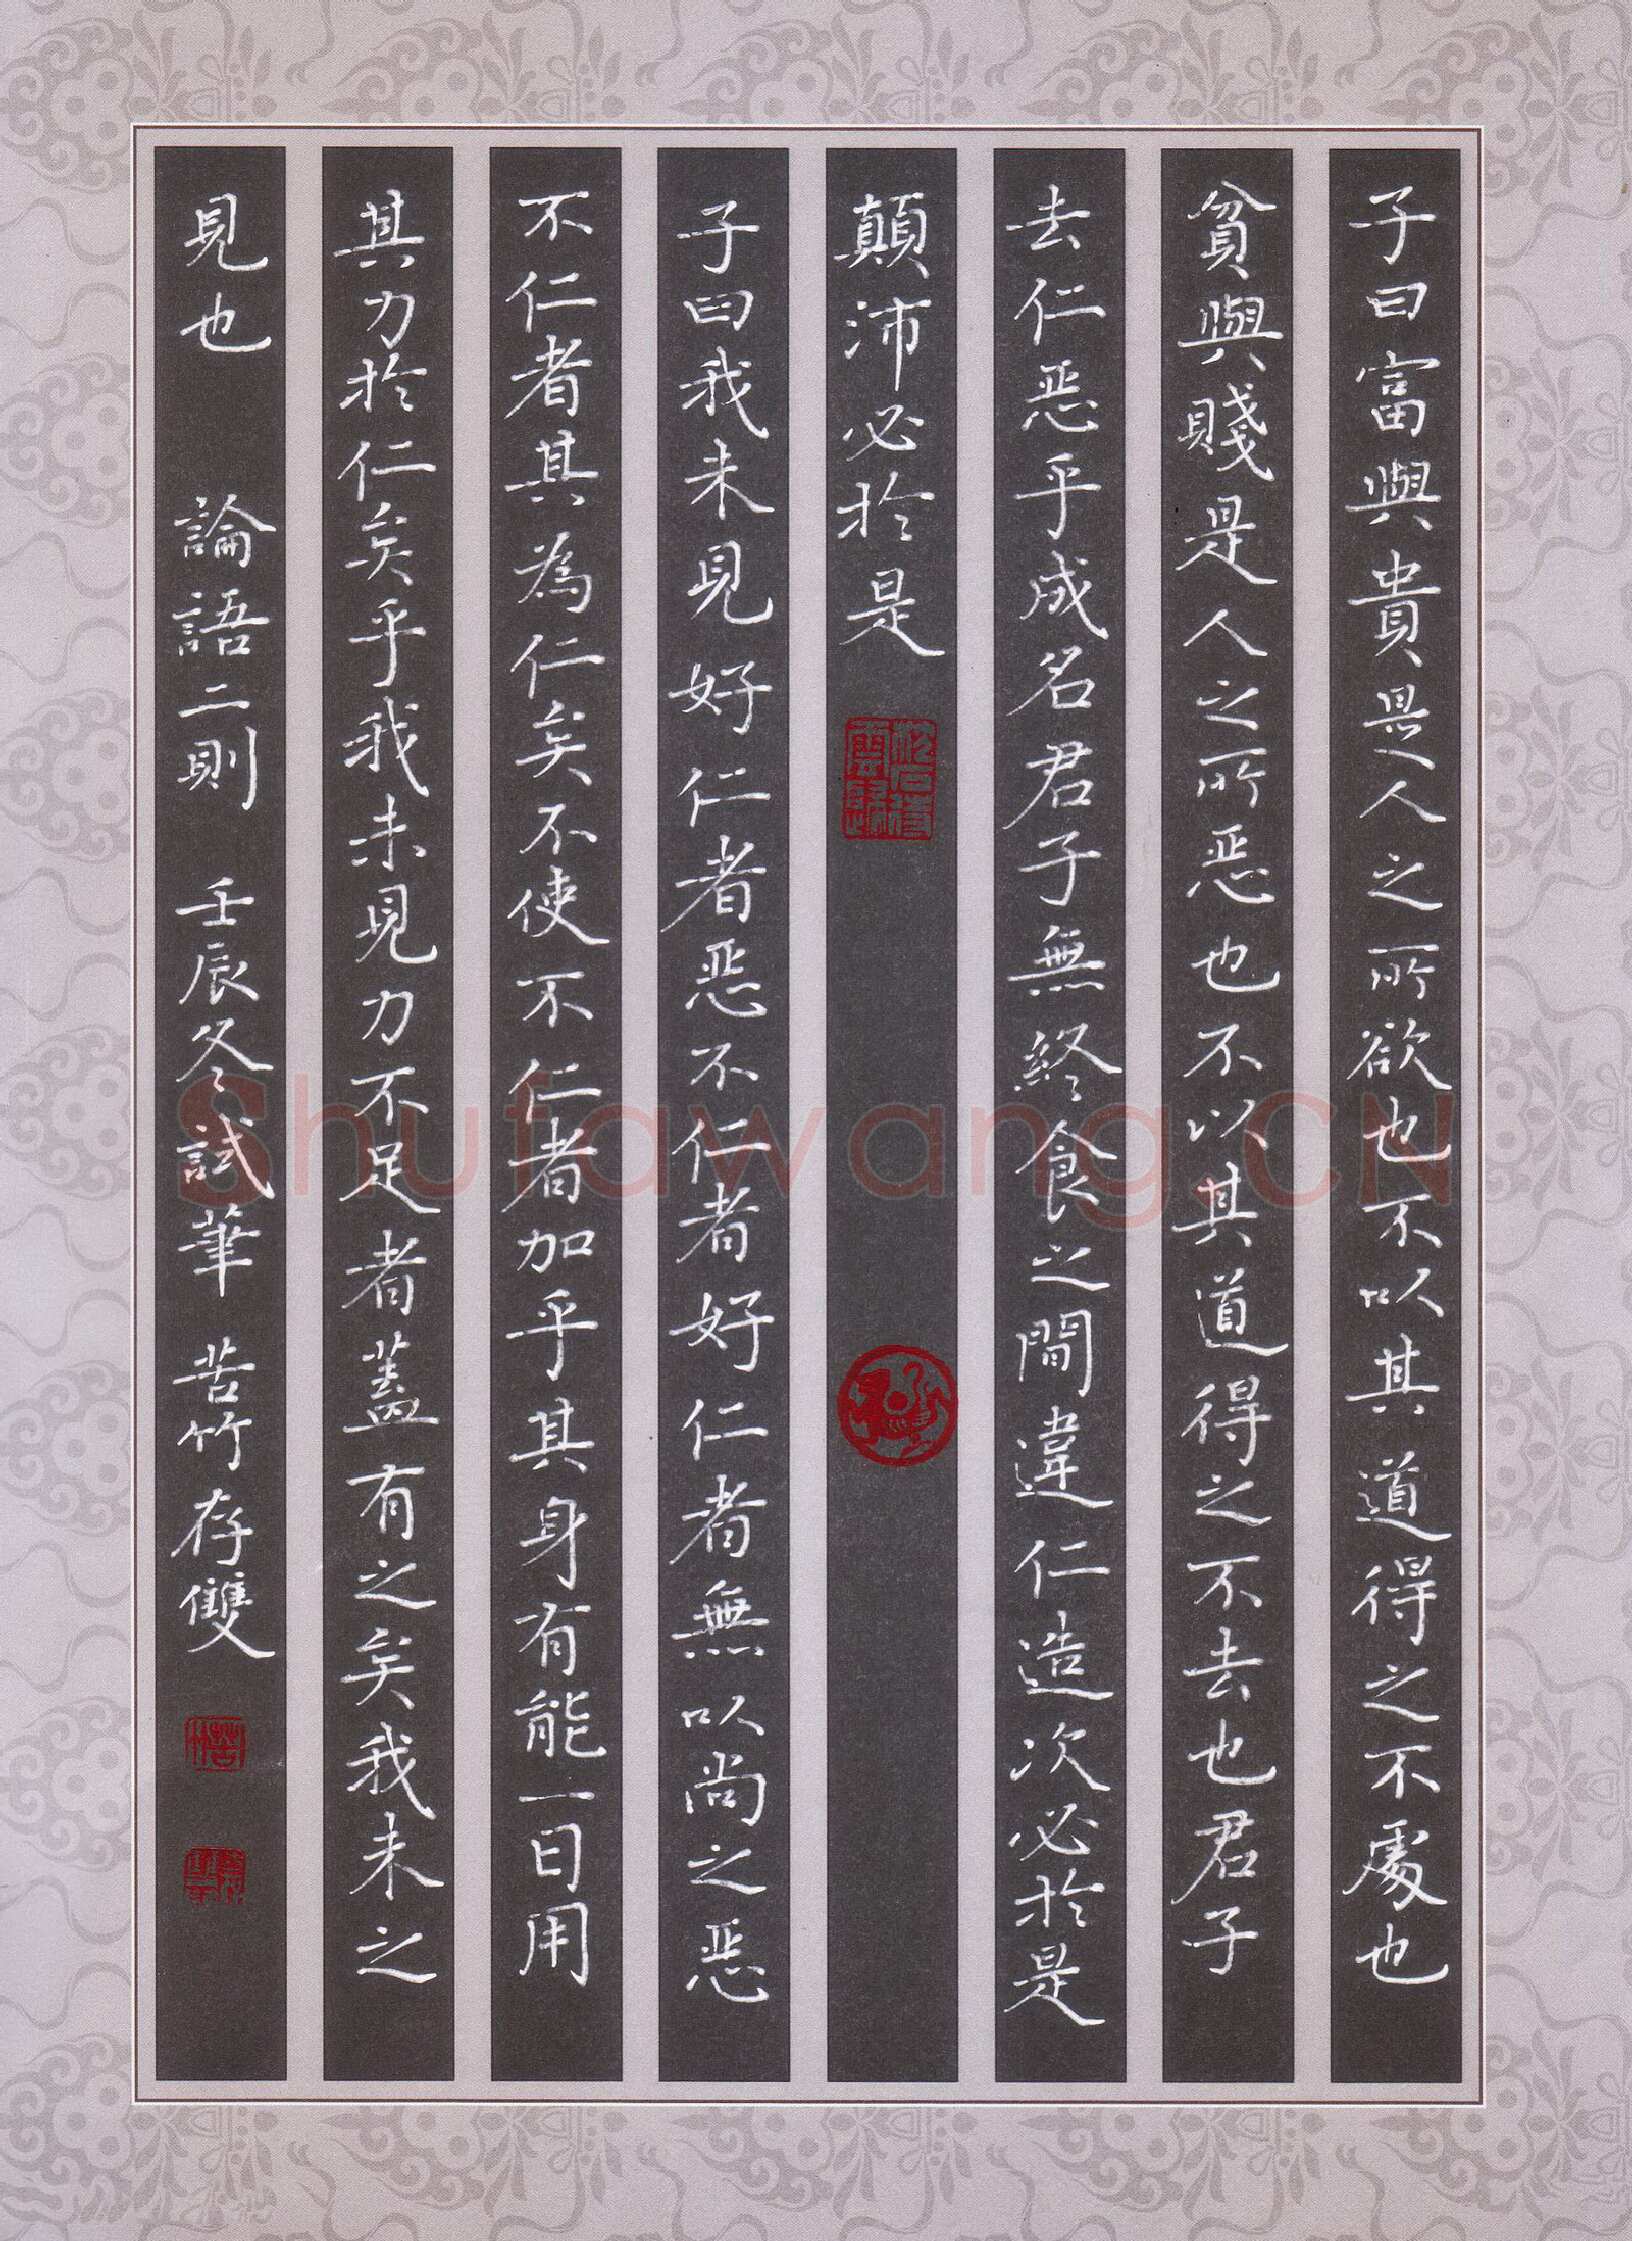 子曰富與貴是人之所欲也不以其道得之不處也
貧與賤是人之所惡也不以其道得之不去也君子
去仁惡乎成名君子無終食之間違仁造次必於是
顛沛必於是
子曰我未見好仁者惡不仁者好仁者無以尚之惡
不仁者其為仁矣不使不仁者加乎其身有能一日用
其力於仁矣乎我未見力不足者蓋有之矣我未之
見也 論語二則 壬辰冬試筆 苦竹存雙
Shufawang.CN